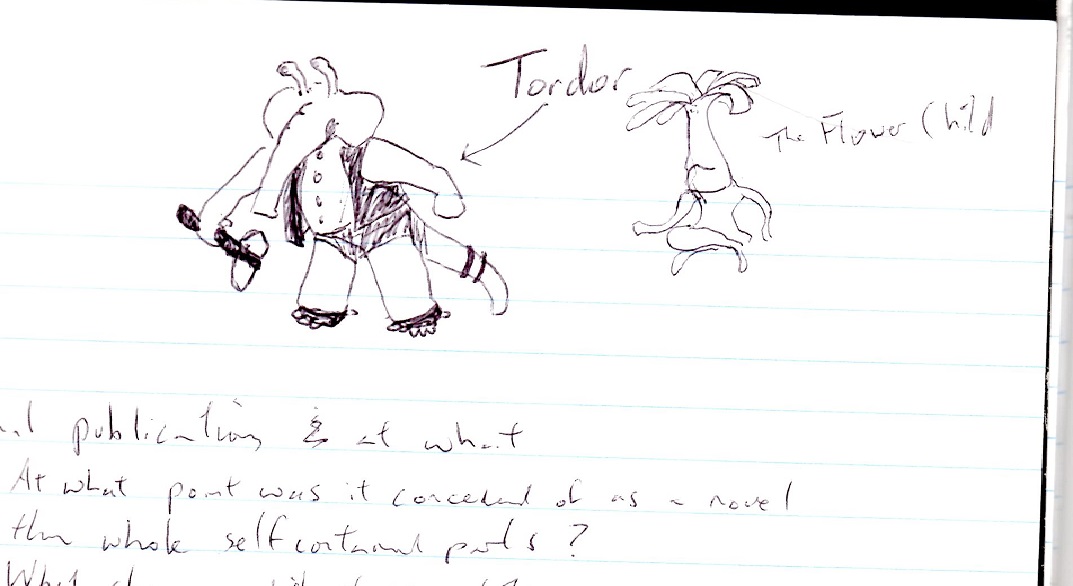 Tordor
The Flower Child
publication & at what
At what point was it conceved of as a novel
then whole selfcontained parts?
What